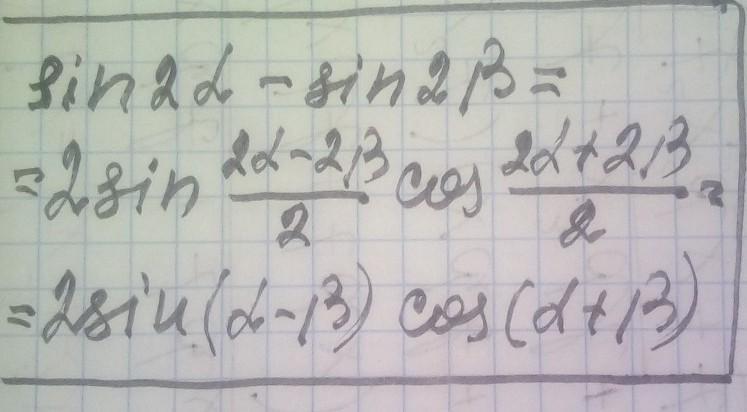 sin2α - sin2β =
= 2sin (2α-2β)/2 cos (2α+2β)/2 =
= 2sin(α-β) cos(α+β)